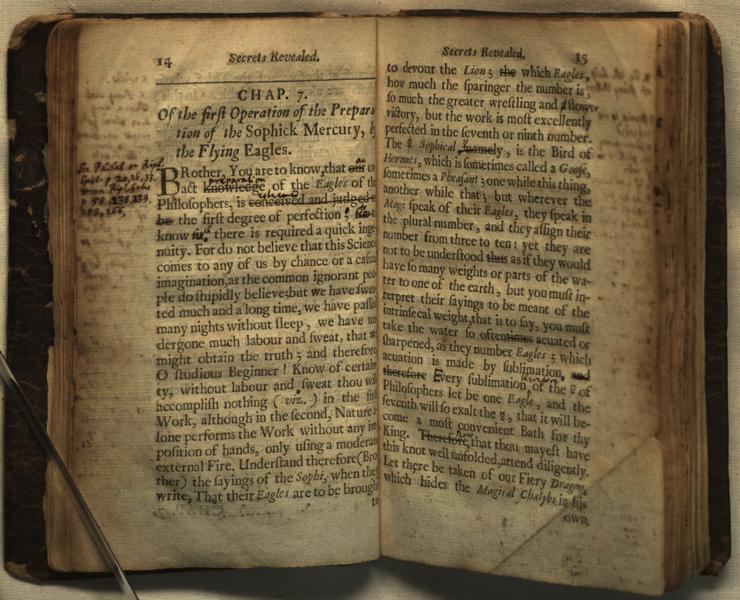 14 Secrets Revealed.
CHAP. 7.
Of the first Operation of the Prepara-
tion of the Sophick Mercury, b
the Flying Eagles.
BRother, You are to know, that our ex
an
act knowledge of the Eagles of the
preparation
Philosophers, is conceived and judged to
esteemed
be the first degree of perfection;
know there is required a quick inge
nuity. For do not believe that this Science
comes to any of us by chance or a casual
imagination, as the common ignorant peo
ple do stupidly believe; but we have swea
ted much and a long time, we have passed
many nights without sleep, we have un
dergone much labour and sweat, that w
might obtain the truth; and therefore
O studious Beginner! Know of certain
ty, without labour and sweat thou wil
accomplish nothing (viz.) in the first
Work, although in the second, Nature
lone performs the Work without any im
position of hands, only using a moderate
external Fire. Understand therefore (Bro
ther) the sayings of the Sophi, when they
write, That their Eagles are to be brough
to
p. 20, 26, 33.
p. 58, 238, 239,
Secrets Revealed. 15
to devour the Lion; the which Eagles,
how much the sparinger the number is,
so much the greater wrestling and slower
victory, but the work is most excellently
perfected in the seventh or ninth number.
The ☿ Sophical, namely, is the Bird of
Hermes, which is sometimes called a Goose,
sometimes a Pheasant; one while this thing,
another while that; but wherever the
Magi speak of their Eagles, they speak in
the plural number, and they assign their
number from three to ten: yet they are
not to be understood thus as if they would
have so many weights or parts of the wa-
ter to one of the earth, but you must in-
terpret their sayings to be meant of the
intrinsecal weight, that is to say, you must
take the water so oftentimes acuated or
sharpened, as they number Eagles; which
acuation is made by sublimation, and
therefore Every sublimation of the ☿ of
Philosophers let be one Eagle, and the
seventh will so exalt the ☿, that it will be-
come a most convenient Bath for thy
King. Therefore, that thou mayest have
Now
this knot well unfolded, attend diligently.
Let there be taken of our Fiery Dragon,
which hides the Magical Chalybs in his
own,